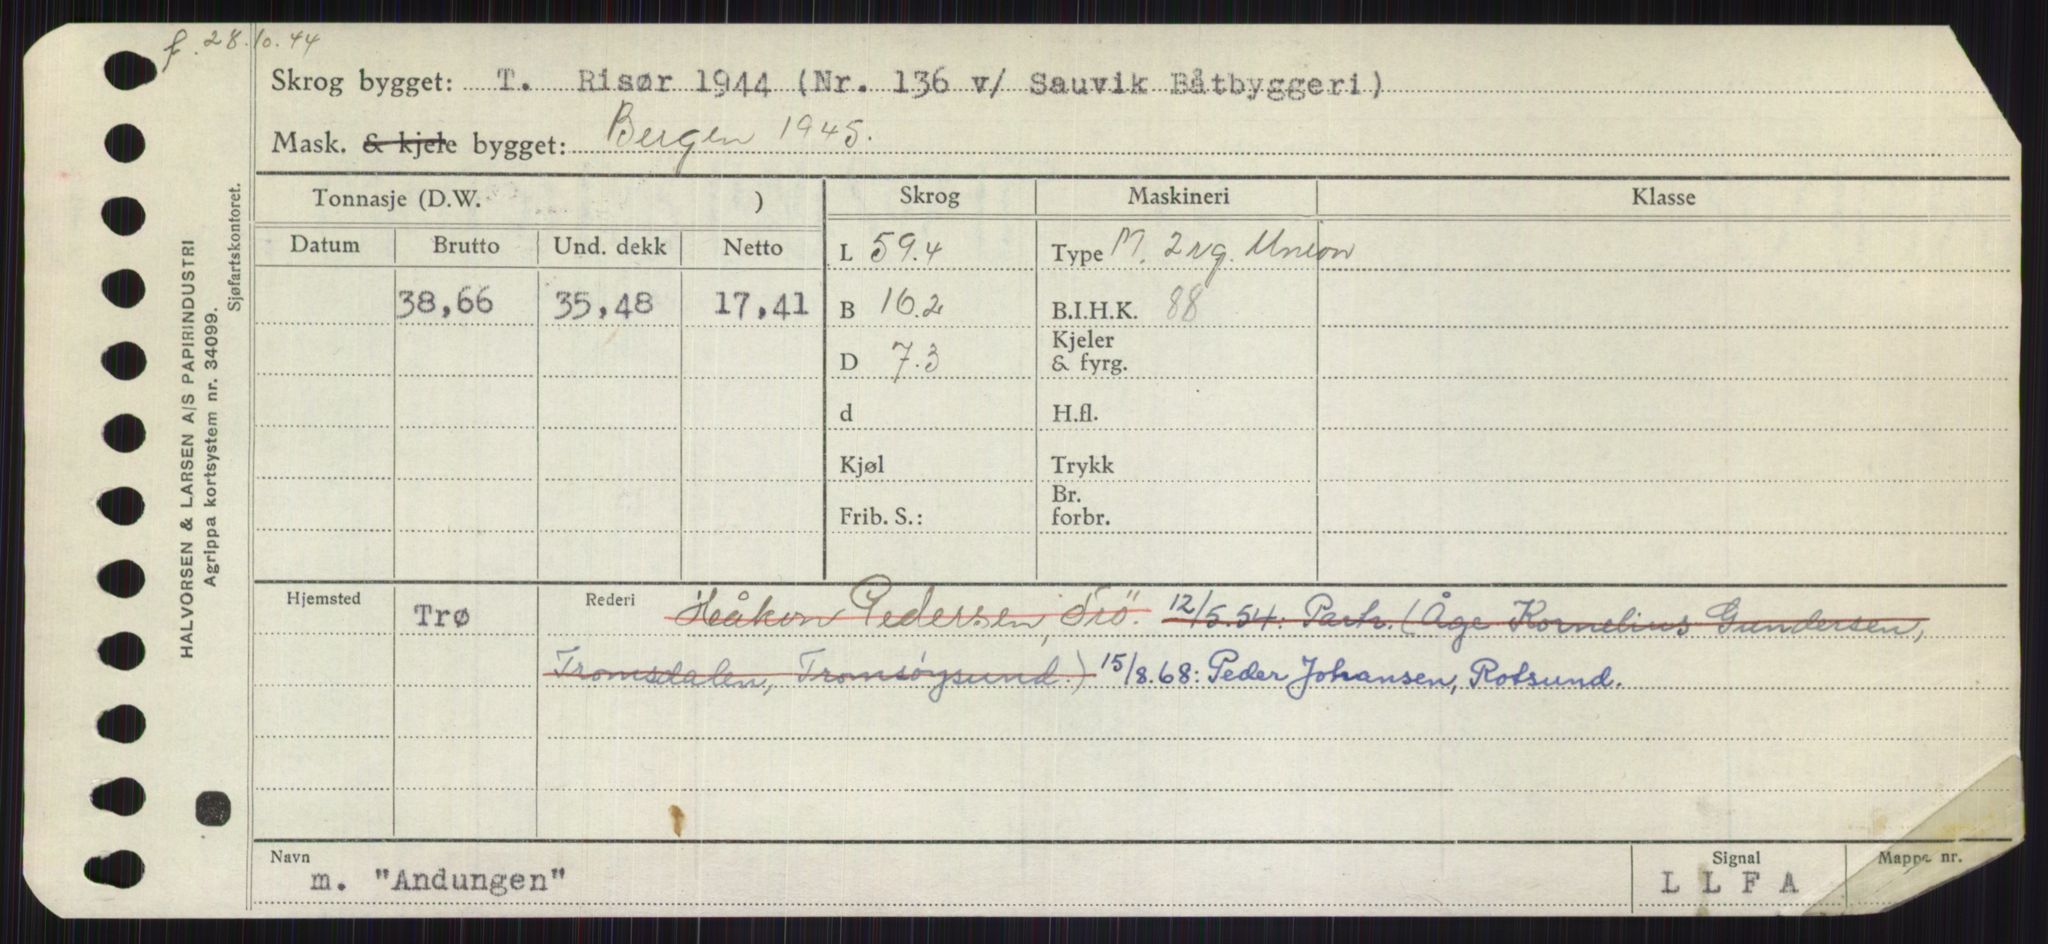 f. 28.10.44
Skrog bygget: T. Risør 1944 (Nr. 136 v/ Sauvik Båtbyggeri)
Mask. & kjele bygget: Bergen 1945.
Tonnasje (D.W. )
Skrog
Maskineri
Klasse
Datum
Brutto
Und. dekk
Netto
L 59.4
Type M. 2 syl. Union
38,66
35,48
17,41
B 16.2
B.I.H.K. 88
D 7.3
Kjeler
& fyrg.
d
H.fl.
Kjøl
Trykk
Frib. S.:
Br.
forbr.
Hjemsted
Trø
Rederi
Håkon Pedersen, Trö. 12/5.54: Partr. (Åge Kornelius Gundersen,
Tromsdalen, Tromsøysund.) 15/8.68: Peder Johansen, Rotsund.
Navn
m. "Andungen"
Signal
L L F A
Mappe nr.
HALVORSEN & LARSEN A/S PAPIRINDUSTRI
Agrippa kortsystem nr. 34099.
Sjøfartskontoret.